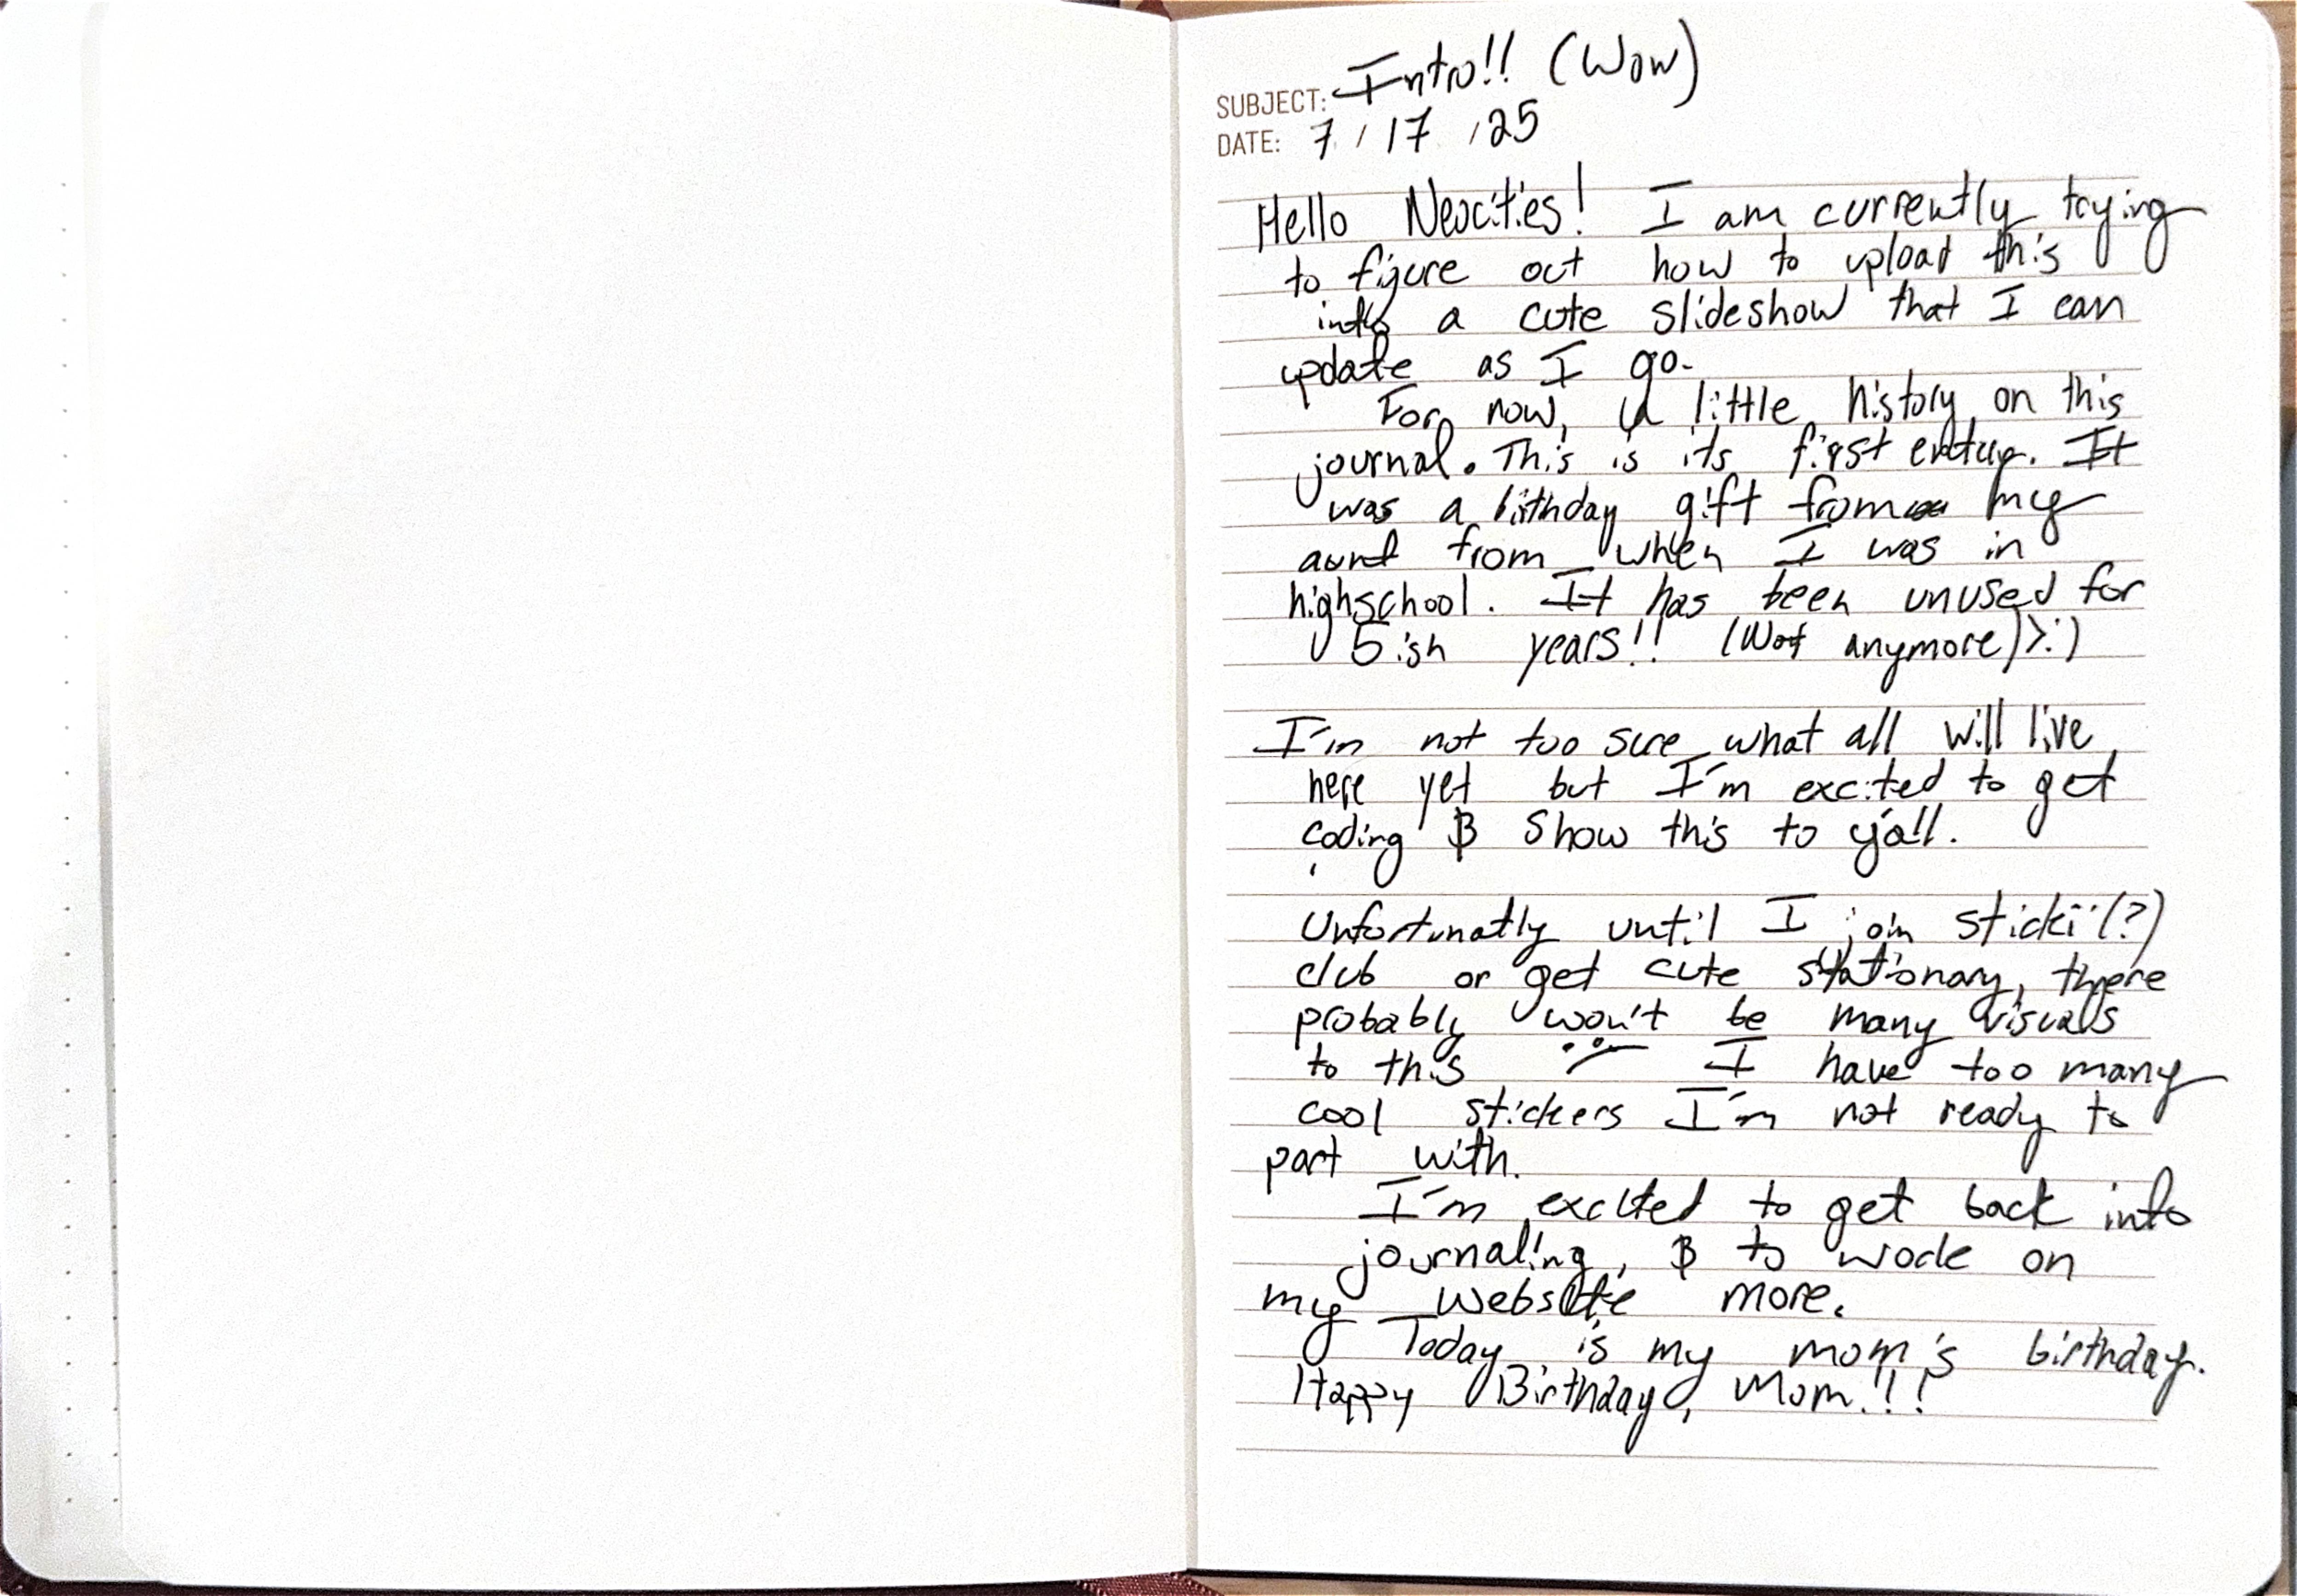 SUBJECT: Intro!! (Wow)
DATE: 7 / 17 / 25
Hello Neocities! I am currently trying
to figure out how to upload this
into a cute slideshow that I can
update as I go.
For now, a little history on this
journal. This is its first entry. It
was a birthday gift from my
aunt from when I was in
highschool. It has been unused for
5ish years!! (Not anymore) >:)
I'm not too sure what all will live
here yet but I'm excited to get
coding & show this to y'all.
Unfortunatly until I join stickii(?)
club or get cute stationary, there
probably won't be many visuals
to this :( I have too many
cool stickers I'm not ready to
part with.
I'm excited to get back into
journaling, & to work on
my website more.
Today is my mom's birthday.
Happy Birthday, Mom!!!